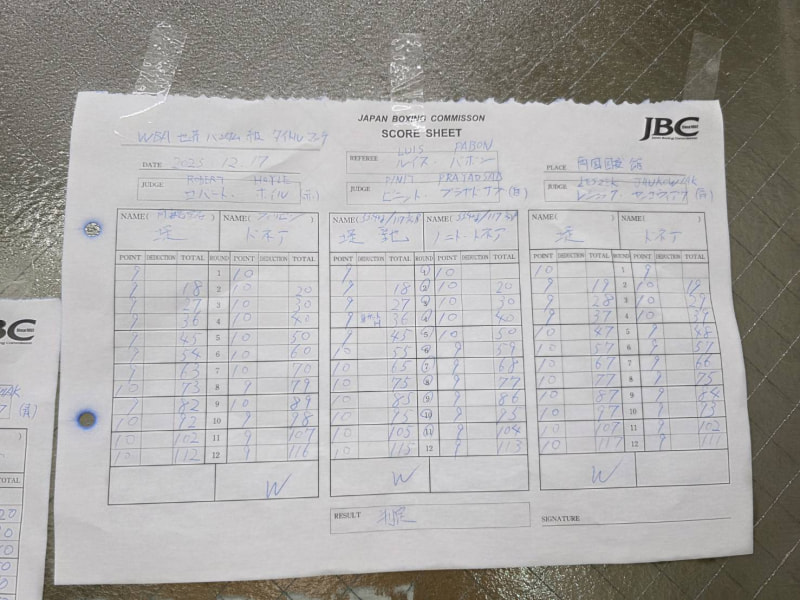 JAPAN BOXING COMMISSON
SCORE SHEET
JBC
WBA 世界バンタム級 タイトルマッチ
DATE 2025. 12. 17
REFEREE LUIS PABON
ルイス・パボン
PLACE 両国国技館
JUDGE ROBERT HOYLE
ロバート・ホイル
JUDGE PINIT PRAYADSAB
ピニット・プラヤドサブ
JUDGE LESZEK JANKOWIAK
レシェック・ヤンコヴィアク
NAME ( ) NAME (フィリピン) NAME ( ) NAME ( ) NAME ( ) NAME ( )
堤 ドネア 堤 聖也 ノニト・ドネア 堤 ドネア
POINT DEDUCTION TOTAL ROUND POINT DEDUCTION TOTAL POINT DEDUCTION TOTAL ROUND POINT DEDUCTION TOTAL POINT DEDUCTION TOTAL ROUND POINT DEDUCTION TOTAL
9 1 10 9 1 10 10 1 9
9 18 2 10 20 9 18 2 10 20 9 19 2 10 19
9 27 3 10 30 9 27 3 10 30 9 28 3 10 29
9 36 4 10 40 9 36 4 10 40 9 37 4 10 39
9 45 5 10 50 9 45 5 10 50 10 47 5 9 48
9 54 6 10 60 10 55 6 9 59 10 57 6 9 57
9 63 7 10 70 10 65 7 9 68 10 67 7 9 66
10 73 8 9 79 10 75 8 9 77 10 77 8 9 75
9 82 9 10 89 10 85 9 9 86 10 87 9 9 84
10 92 10 9 98 10 95 10 9 95 10 97 10 9 93
10 102 11 9 107 10 105 11 9 104 10 107 11 9 102
10 112 12 9 116 10 115 12 9 113 10 117 12 9 111
W W W
RESULT 判定
SIGNATURE
BC
TOTAL